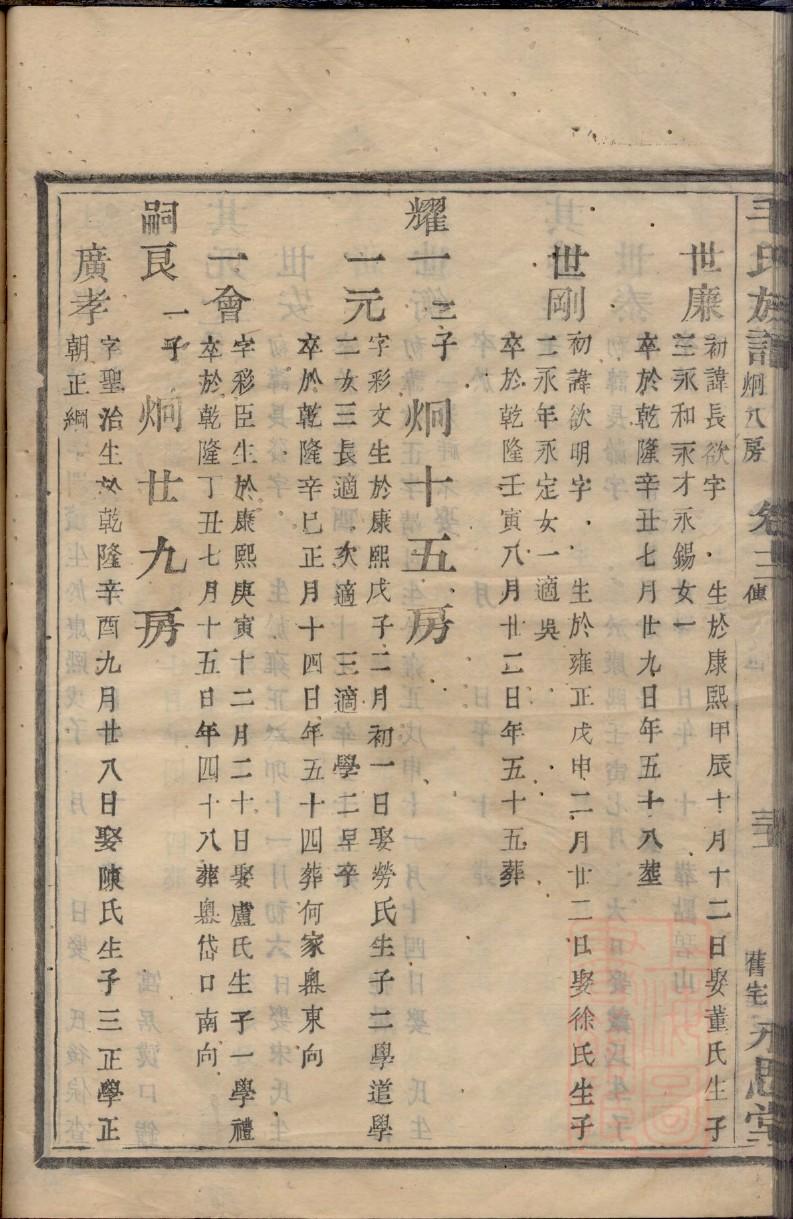 毛氏族譜 炯八房 卷三 傳 舊宅 永思堂
世廉 初諱長欲字 生於康熙甲辰十月十二日娶董氏生子
三永和永才永錫女一
卒於乾隆辛丑七月廿九日年五十八塟
世剛 初諱欲明字 生於雍正戊申二月廿二日娶徐氏生子
二永年永定女一適吳
卒於乾隆壬寅八月廿二日年五十五葬
耀一 二子 炯十五房
一元 字彩文生於康熙戊子二月初一日娶勞氏生子二學道學
二女三長適 次適 三適 學二早卒
卒於乾隆辛巳正月十四日年五十四葬何家嶴東向
一會 字彩臣生於康熙庚寅十二月二十日娶盧氏生子一學禮
卒於乾隆丁丑七月十五日年四十八葬嶴岱口南向
嗣良 一子 炯廿九房
廣孝 字聖治生於乾隆辛酉九月廿八日娶陳氏生子三正學正
朝正綱